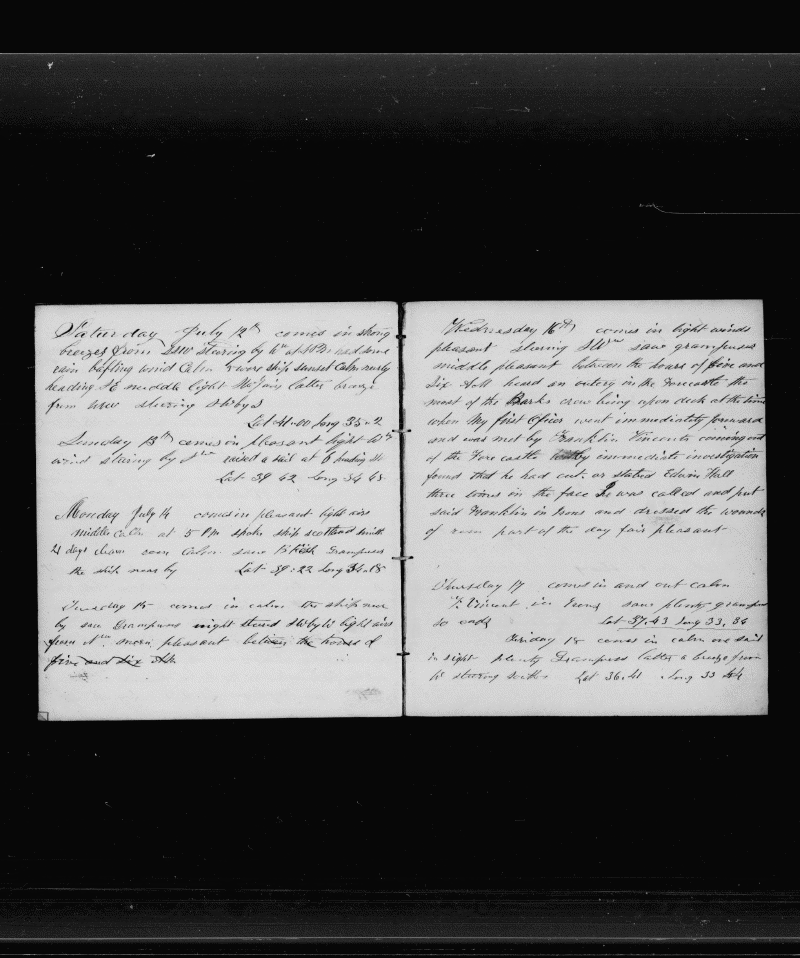 Saturday July 12th comes in strong
breezes from SSW stearing by W at 11 PM had some
rain bafling wind Calm & wore ship sunset Calm nearly
heading SE middle light latter breeze
from WSW stearing SEbyS
Lat 41=00 Long 35=2
Sunday 13th comes in pleasant light Wrn
wind stearing by Srn raised a sail at 6 heading St
Lat 39 42 Long 34 48
Monday July 14 comes in pleasant light airs
middle Calm at 5 PM spoke ship Scotland Smith
21 days clean soon Calm saw Grampuses
the ship near by Lat 39=22 Long 34=18
Tuesday 15 comes in calm the ship near
by saw Grampuses night steard SEbyS light airs
from Nrn morn pleasant between the hours of
five and six
Wednesday 16th comes in light winds
pleasant stearing SWrn saw grampuses
middle pleasant between the hours of five and
Six Hall heard an outcry in the Forecastle the
most of the Barks crew being upon deck at the time
when My first Oficer went immediately forward
and was met by Franklin Vincent coming out
of the Forecastle by immediate investigation
found that he had cut, or stabed Edwin Hall
three times in the face he was called and put
said Franklin in Irons and dressed the wounds
of part of the day fair pleasant
Thursday 17 comes in and out calm
F. Vincent in Irons saw plenty grampus
so ends Lat 37.43 Long 33,34
Friday 18 comes in calm one sail
in sight plenty Grampuses latter a breeze from
W stearing South Lat 36.41 Long 33 44